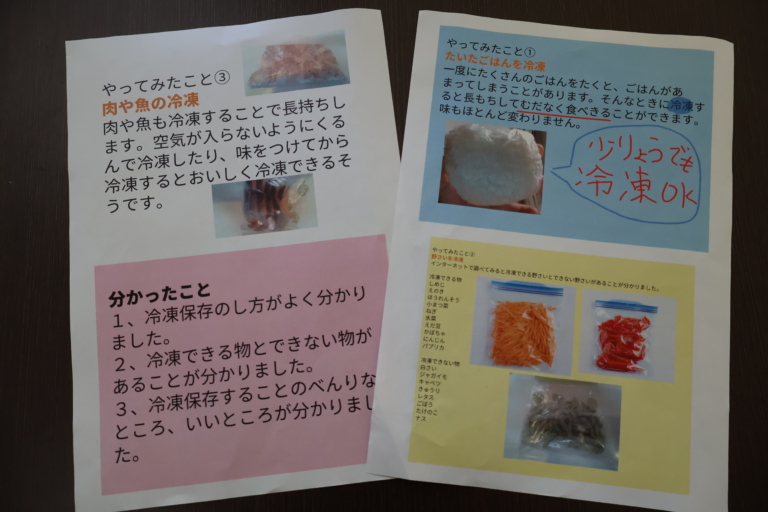 やってみたこと③
肉や魚の冷凍
肉や魚も冷凍することで長持ちし
ます。空気が入らないようにくる
んで冷凍したり、味をつけてから
冷凍するとおいしく冷凍できるそ
うです。
分かったこと
１、冷凍保存のし方がよく分かり
ました。
２、冷凍できる物とできない物が
あることが分かりました。
３、冷凍保存することのべんりな
ところ、いいところが分かりまし
た。
やってみたこと①
たいたごはんを冷凍
一度にたくさんのごはんをたくと、ごはんがあ
まってしまうことがあります。そんなときに冷凍す
ると長もちしてむだなく食べきることができます。
味もほとんど変わりません。
少りょうでも
冷凍OK
やってみたこと②
野さいを冷凍
インターネットで調べてみると冷凍できる野さいとできない野さいがあることが分かりました。
冷凍できる物
しめじ
えのき
ほうれんそう
小まつ菜
ねぎ
水菜
えだ豆
かぼちゃ
にんじん
パプリカ
冷凍できない物
白さい
ジャガイモ
キャベツ
きゅうり
レタス
ごぼう
たけのこ
ナス